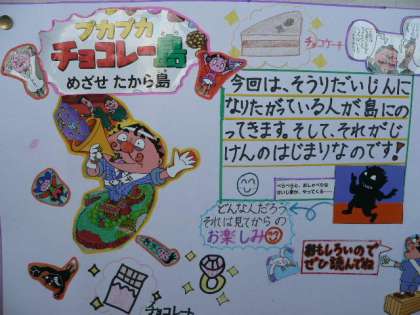 プカプカ
チョコレー島
めざせ たから島
チョコケーキ
今回は、そうりだいじんに
なりたがっている人が、島にの
ってきます。そして、それがじ
けんのはじまりなのです!
どんな人だろう
それは見てからの
お楽しみ
おもしろいので
ぜひ読んでね
チョコレート